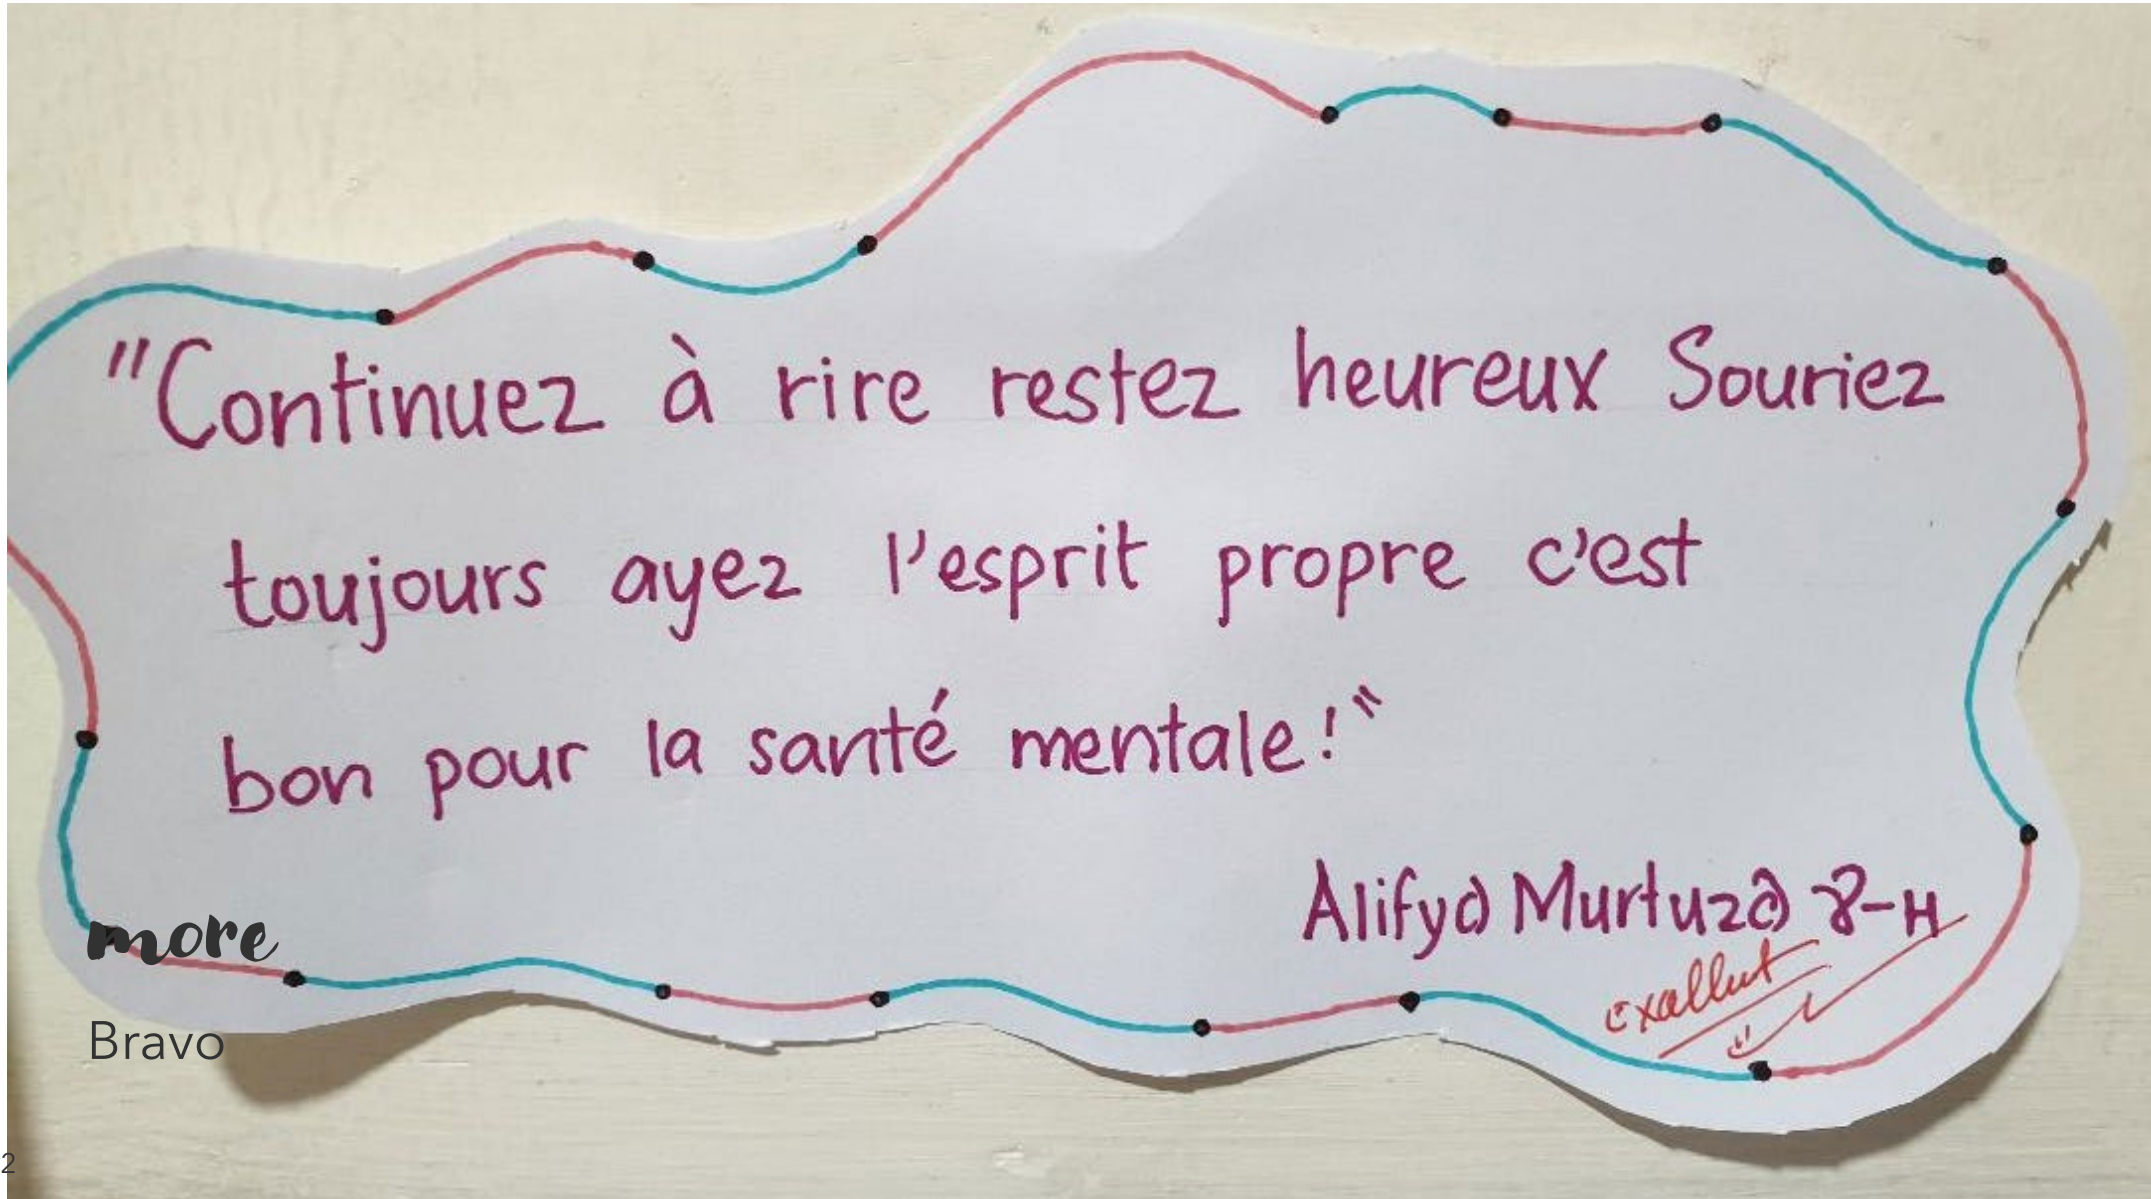 "Continuez à rire restez heureux Souriez
toujours ayez l'esprit propre c'est
bon pour la santé mentale!"
Alifya Murtuza 8-H
more
Bravo
2